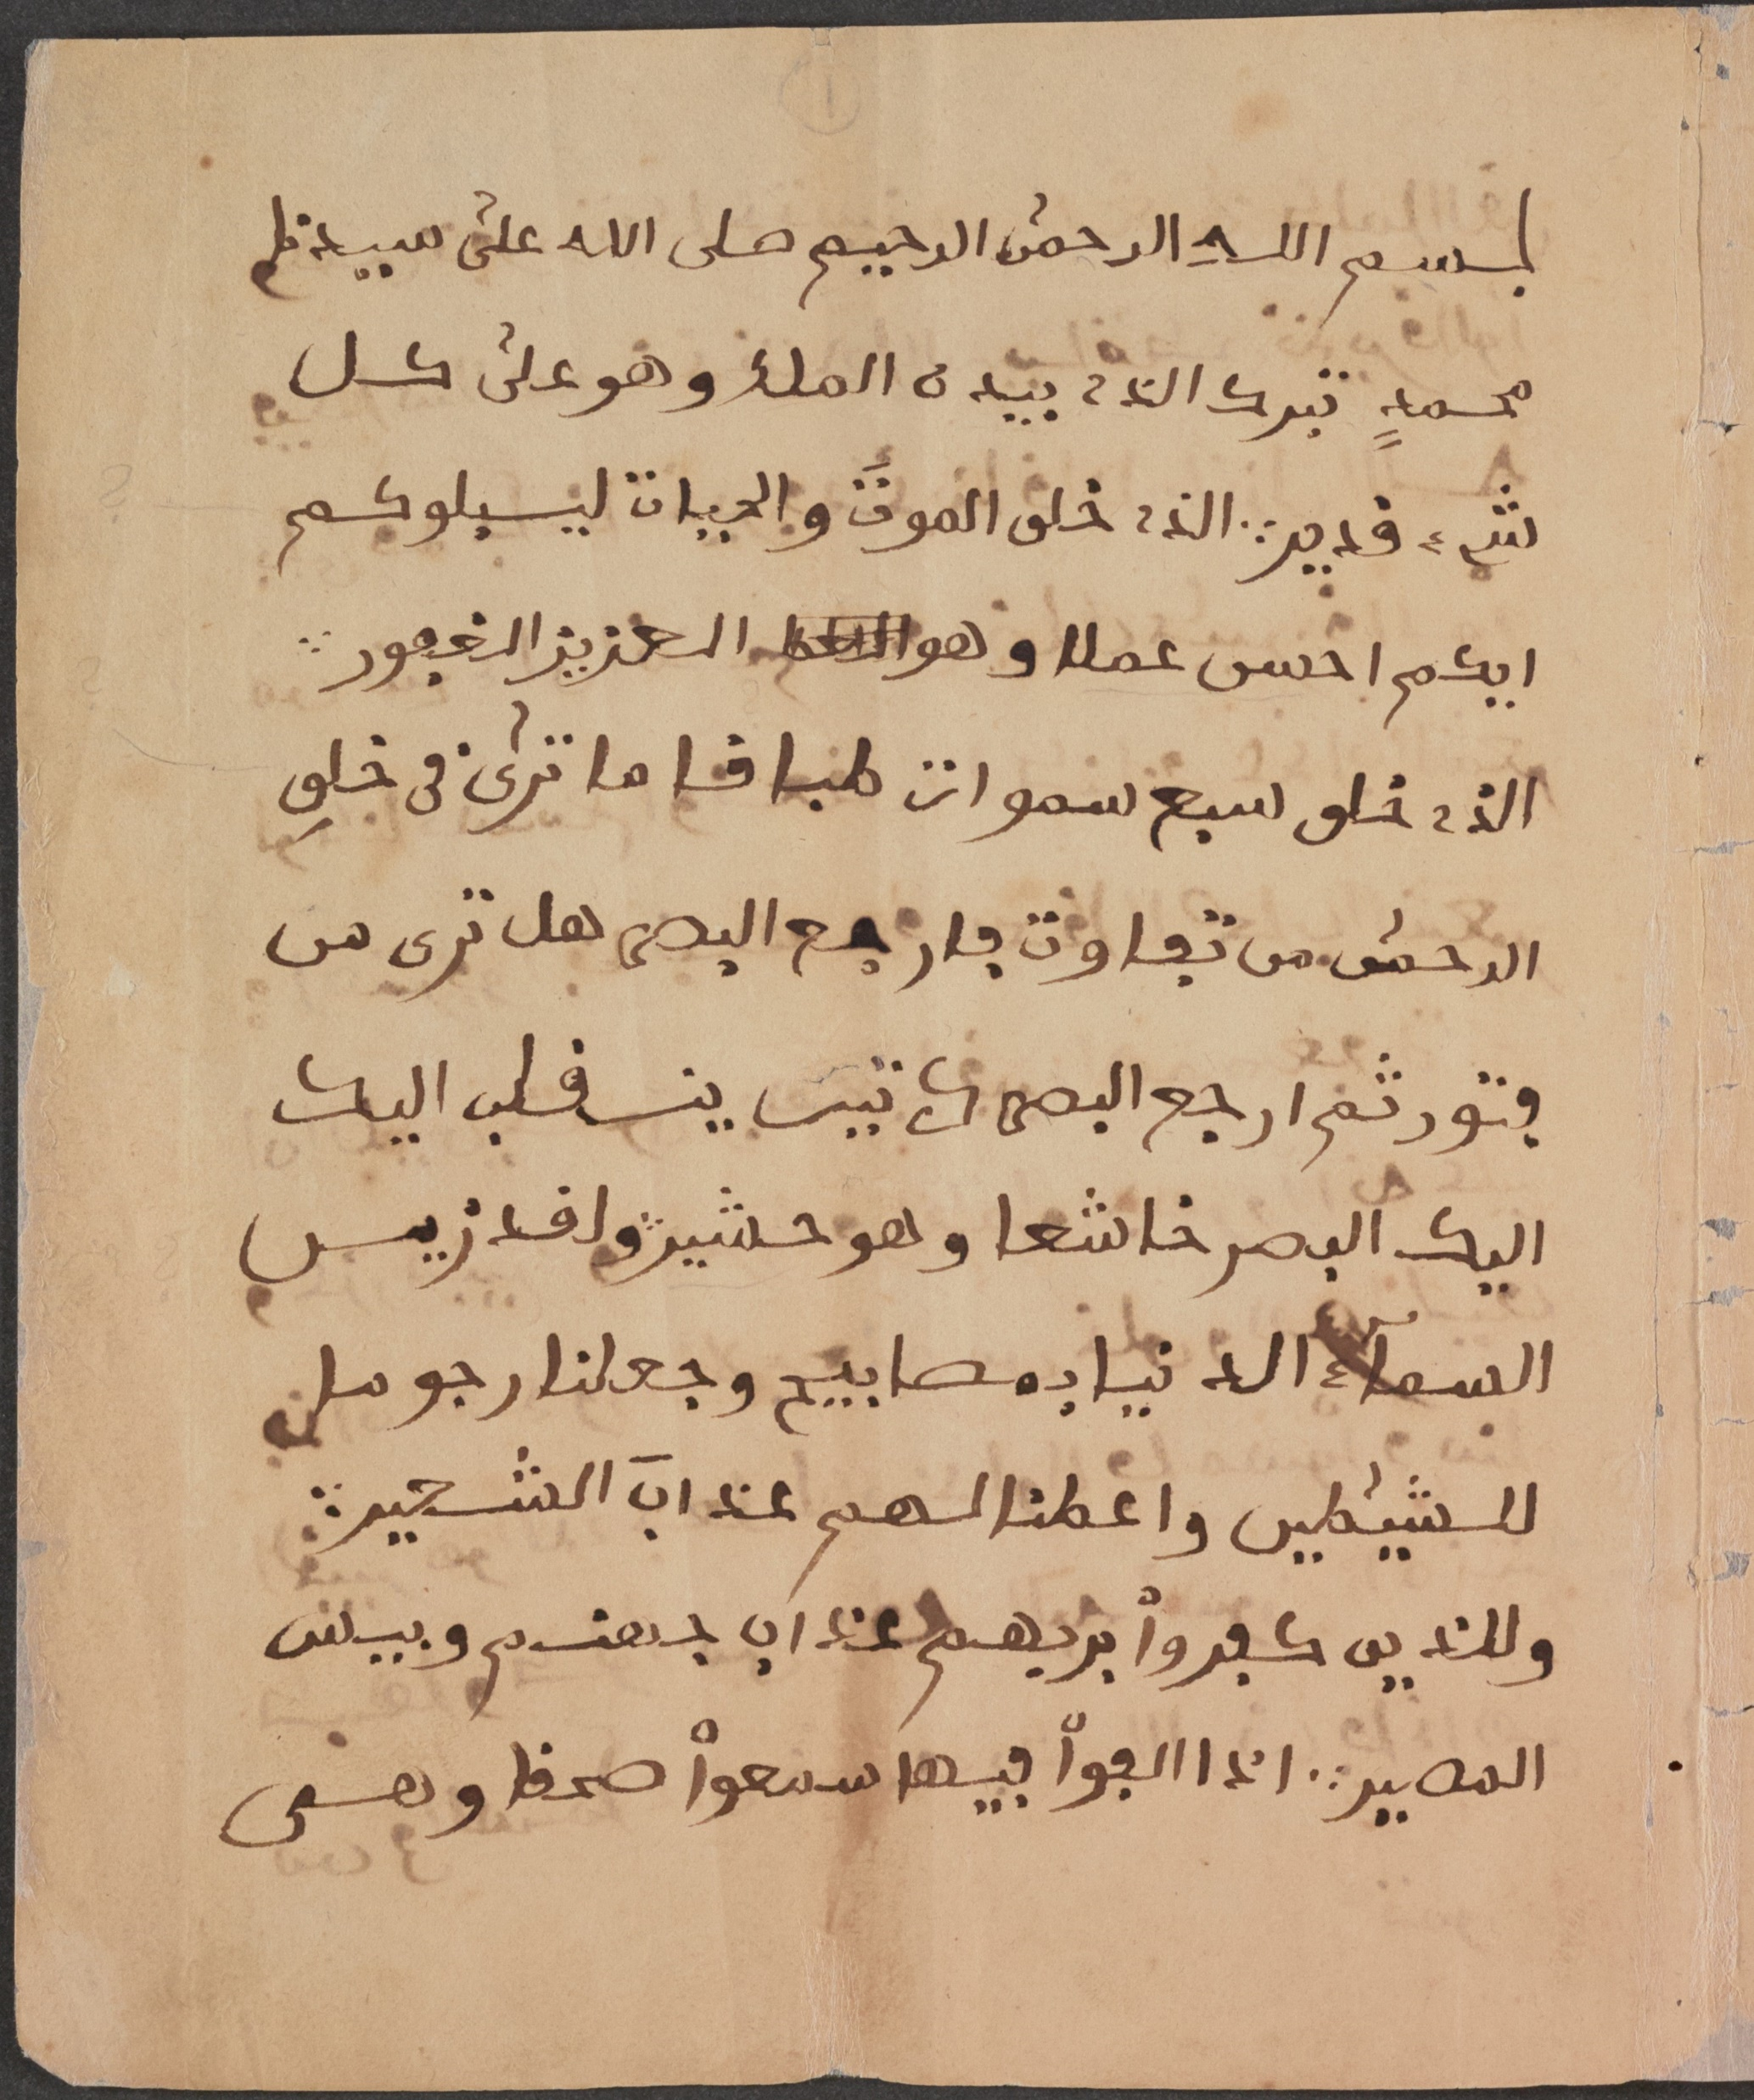 بسم الله الرحمٰن الرحيم صلى الله علىٰ سيدنا
محمدٍ تبرك الذي بيده الملك وهو علىٰ كل
شيء قدير∴ الذي خلق الموتَ والحيات ليبلوكم
ايكم احسن عملا وهو العزيز الغفور∴
الذي خلق سبع سموات طباقا ما ترىٰ في خلقِ
الرحمٰن من تفاوت فارجع البصر هل ترى من
فتور ثم ارجع البصر كرتين ينقلب اليك
اليك البصر خاشعا وهو حشير∴ ولقد زين
السمآء الدنيا بمصابيح وجعلنا رجوما
للشيٰطين واعطنا لهم عذابَ الشعير∴
وللذين كفرواْ بربهم عذاب جهنم وبيس
المصير∴ اذا القواْ فيها سمعواْ صهقا وهى
١